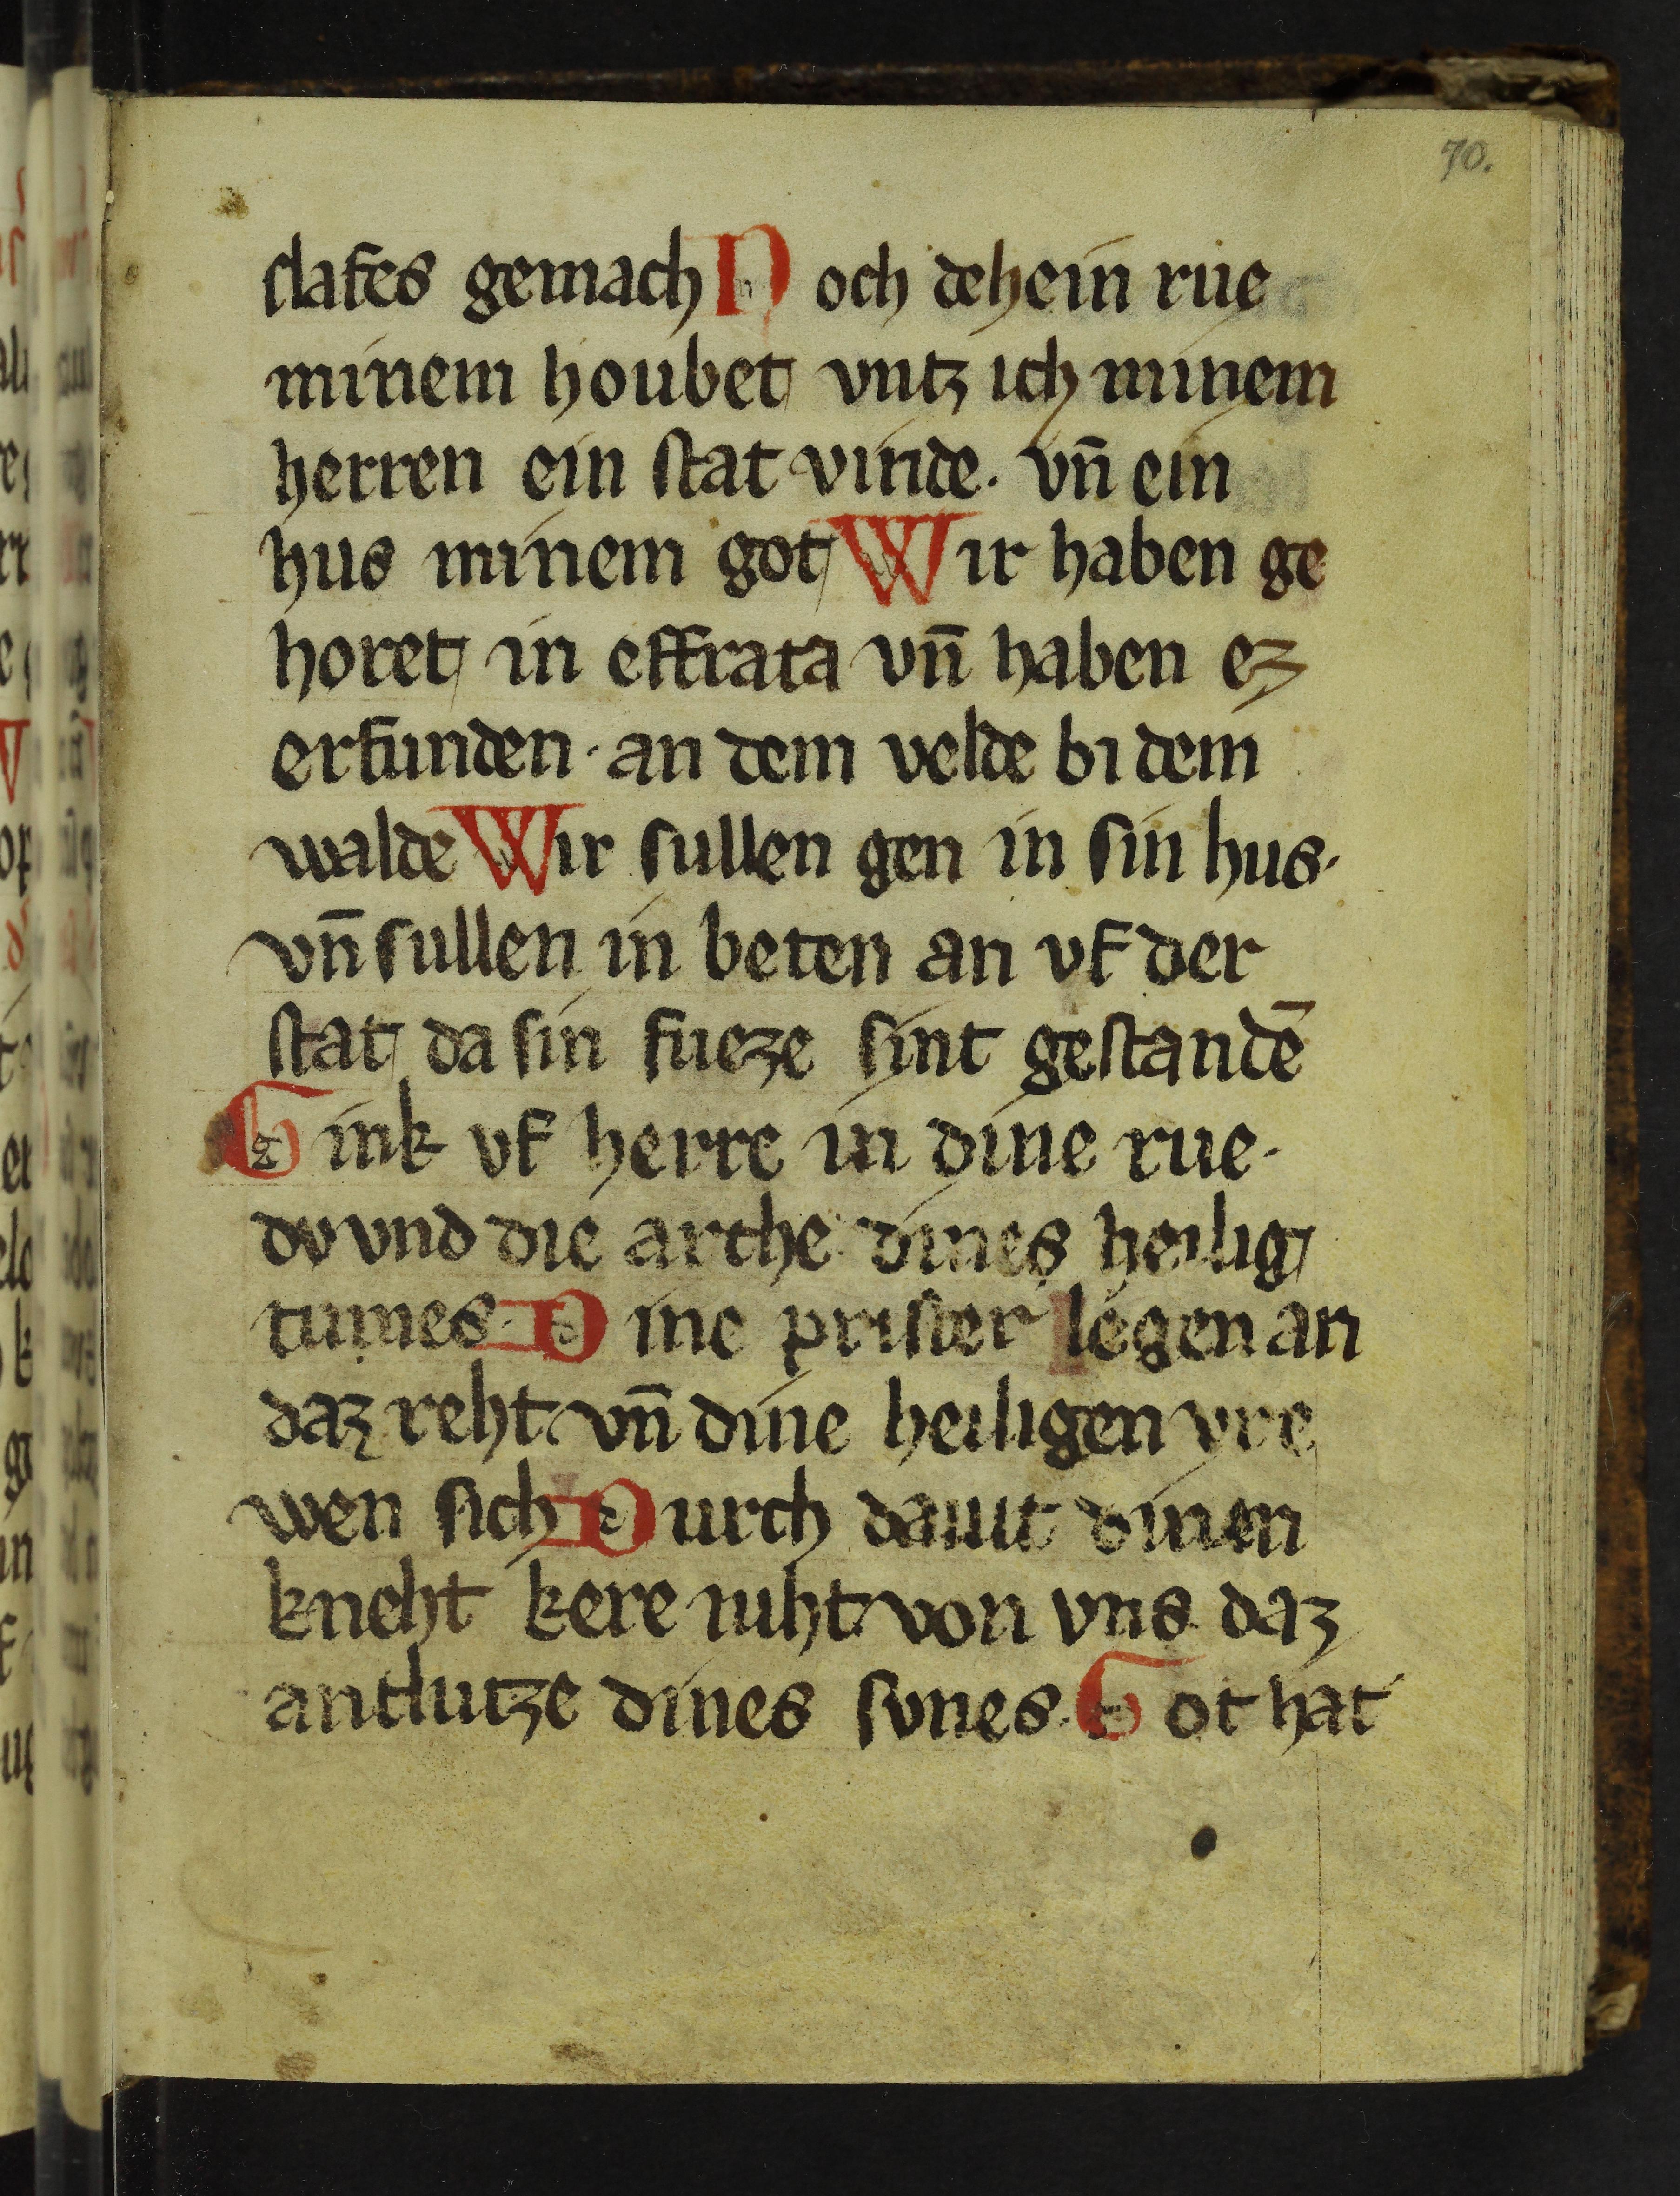 70.
slafes gemach Noch dehein rue
minem houbet vntz ich minem
herren ein stat vinde. vn̄ ein
hus minem got Wir haben ge
horet in effrata vn̄ haben ez
erfunden · an dem velde bi dem
walde Wir sullen gen in sin hus ·
vn̄ sullen in beten an vf der
stat da sin fueze sint gestandē
Gink vf herre in dine rue ·
dv vnd die arche dines heilig
tumes · Dine prister legen an
daz reht vn̄ dine heiligen vre
wen sich Durch dauit dinen
kneht kere niht von vns daz
antlutze dines svnes · Got hat